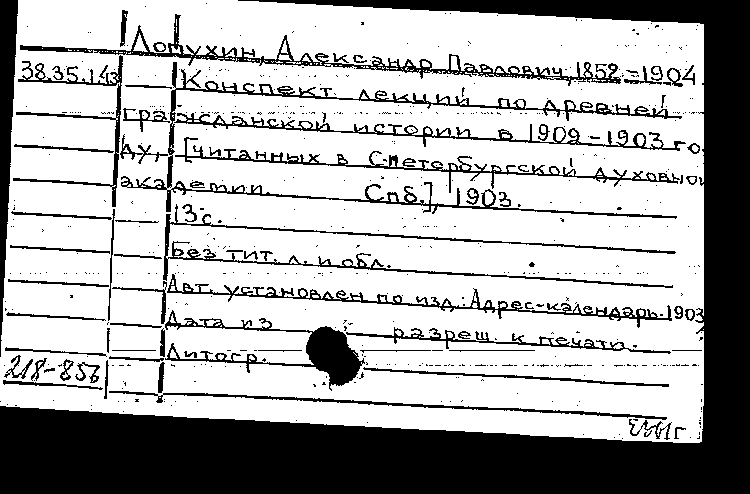 Лопухин, Александр Павлович, 1852-1904.
38.35.143
Конспект лекций по древней
гражданской истории в 1902-1903 го-
ду, [читанных в С-Петербургской духовной
академии. Спб.], 1903.
13 с.
Без тит. л. и обл.
Авт. установлен по изд.: Адрес-календарь. 1903
Дата из разреш. к печати.
Литогр.
218-856